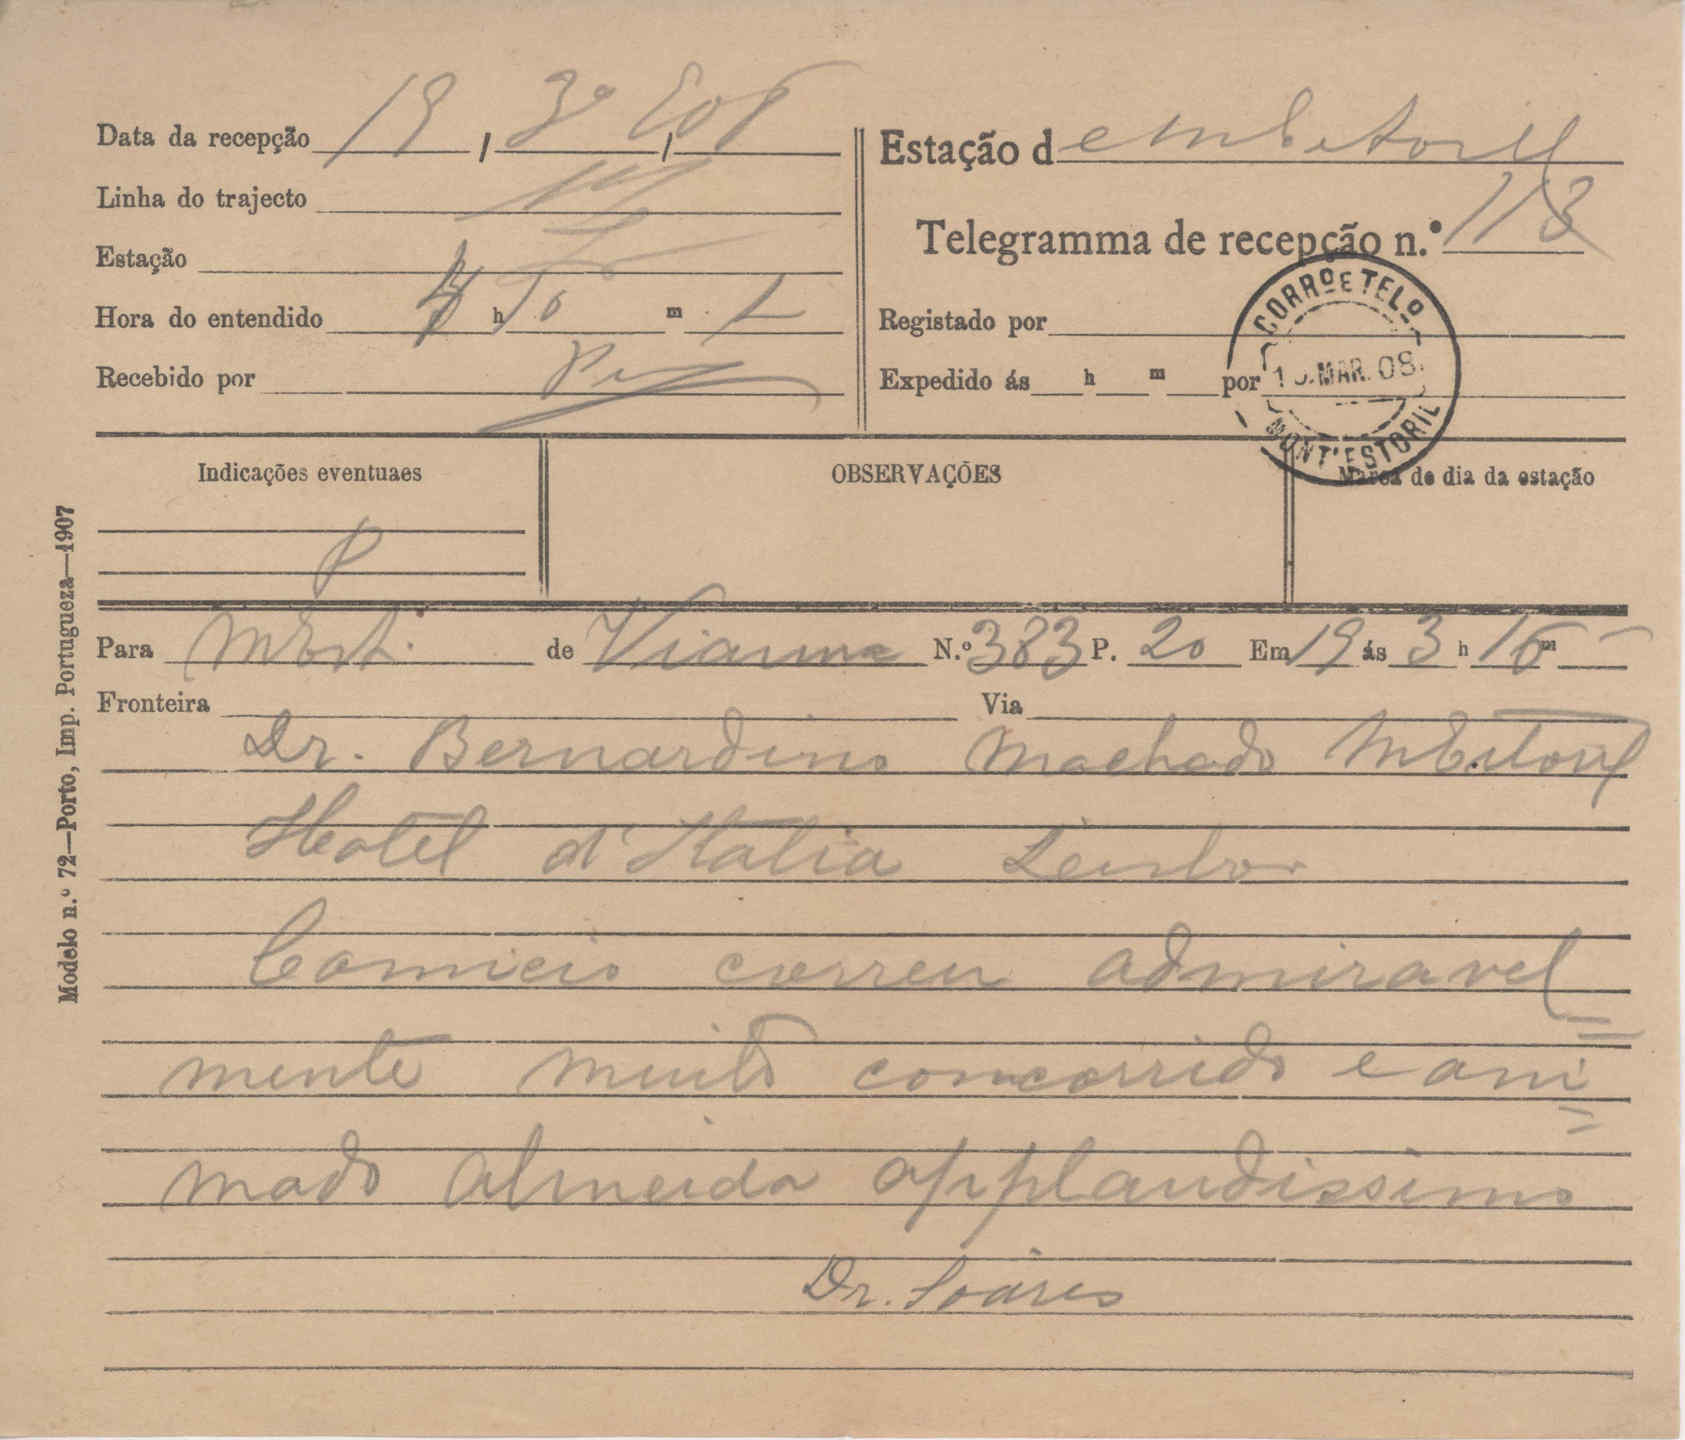 Data da recepção 19, 3º, 908
Linha do trajecto
Estação
Hora do entendido 4 h 10 m
Recebido por
Estação d
Telegramma de recepção n.º 118
Registado por
Expedido ás h m por
CORRº E TELº
MAR. 08
MONT'ESTORIL
Indicações eventuaes
OBSERVAÇÕES
Marca de dia da estação
P
Para MEst. de Vianna N.º 383 P. 20 Em 19 ás 3 h 15 m
Fronteira Via
Dr. Bernardino Machado MEstoril
Hotel d'Italia
Comicio correu admiravel=
mente muito concorrido e ani=
mado Almeida applaudissimo
Dr. Soares
Modelo n.º 72—Porto, Imp. Portugueza—1907